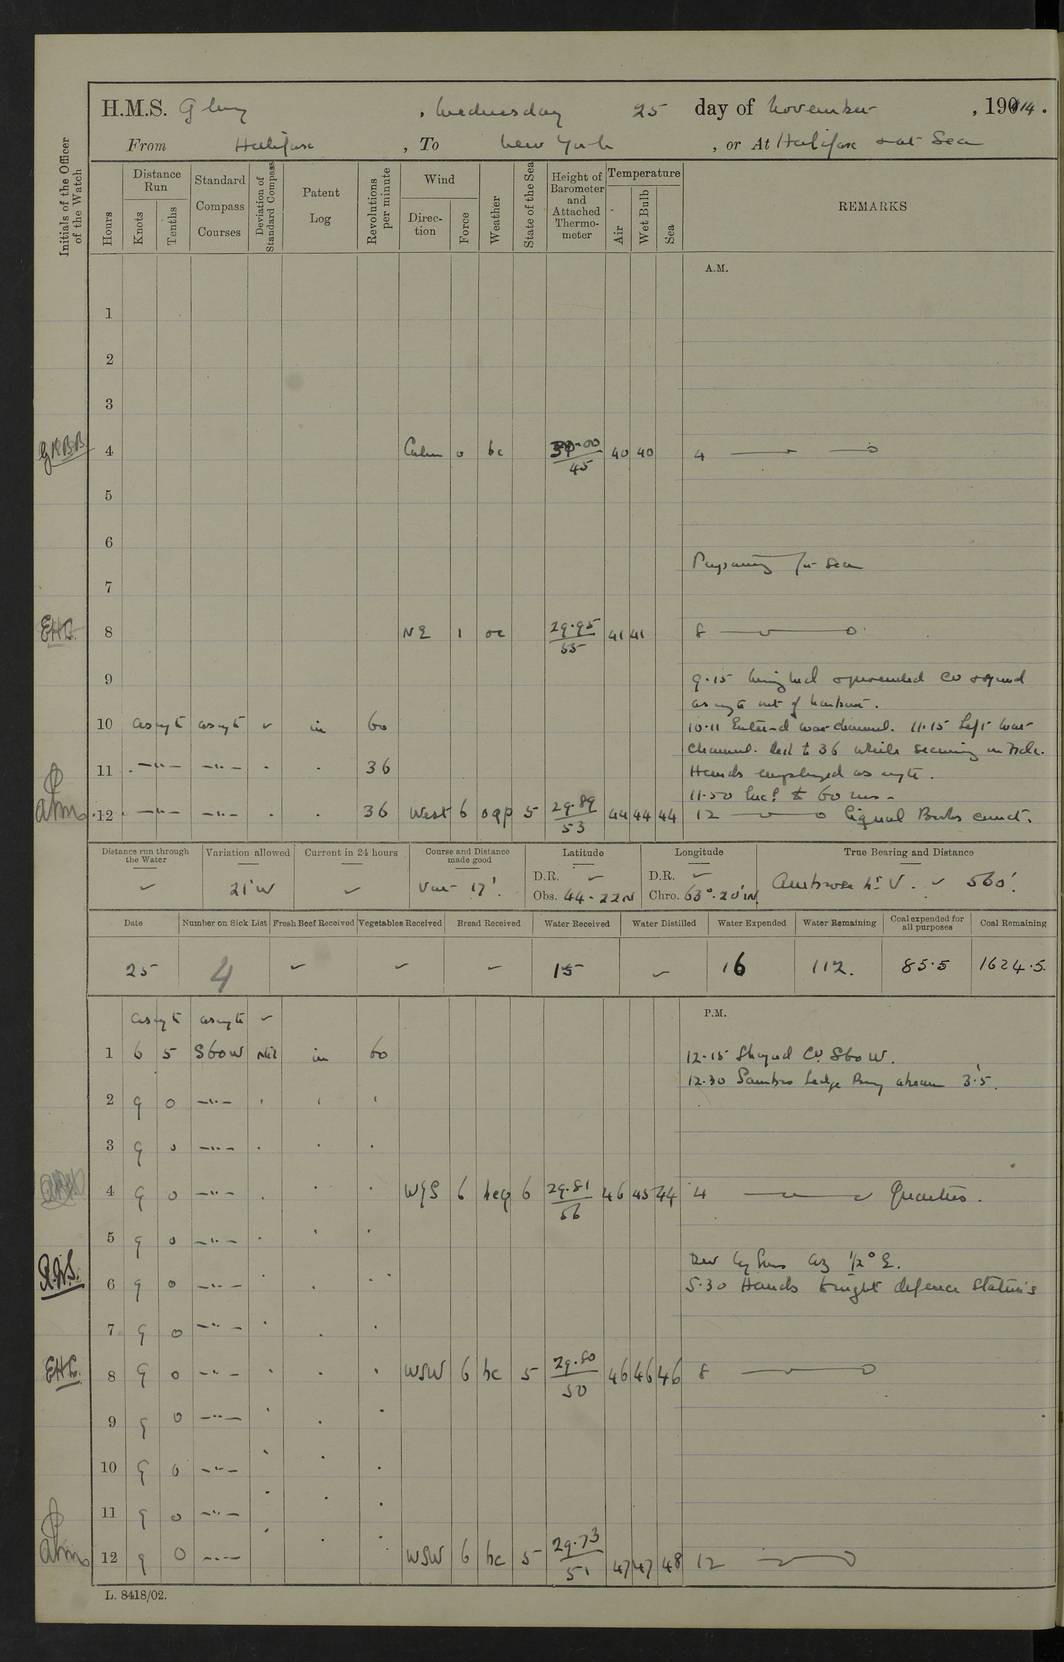 H.M.S. Glory, Wednesday 25 day of November, 1914.
From Halifax, To New York, or At Halifax & at Sea
Initials of the Officer of the Watch
Hours
Distance Run
Knots
Tenths
Standard Compass Courses
Deviation of Standard Compass
Patent Log
Revolutions per minute
Wind
Direction
Force
Weather
State of the Sea
Height of Barometer and Attached Thermometer
Temperature
Air
Wet Bulb
Sea
REMARKS
A.M.
1
2
3
GRBB 4 Calm 0 bc 45 40 40 4
5
6
Preparing for Sea
7
EHB 8 NE 1 oc 29.95 55 41 41 8
9
9.15 proceeded Co & speed
as reqte out of harbour.
10 as reqte as reqte in 60
10.11 Entered war channel. 11.15 Left war
channel. Red to 36 while securing
11 —"— —"— 36
Hands employed as reqte.
11.50 Incd to 60 revs
12 —"— —"— 36 West 6 oqp 5 29.89 53 44 44 44 12
Distance run through the Water
Variation allowed
21°W
Current in 24 hours
Course and Distance made good
Var 17'.
Latitude
D.R.
Obs. 44.22N
Longitude
D.R.
Chro. 63°.20'W
True Bearing and Distance
Ambrose Lt V. 560'.
Date
Number on Sick List
Fresh Beef Received
Vegetables Received
Bread Received
Water Received
Water Distilled
Water Expended
Water Remaining
Coal expended for all purposes
Coal Remaining
25 4 15 16 112. 85.5 1624.5
P.M.
as reqte as reqte
1 6 5 S60W Nil in 60
12.15 Shaped Co. S60W.
12.30 Sambro Ledge Buoy abeam 3'.5.
2 9 0 —"—
3 9 0 —"—
4 9 0 —"— WSW 6 bcq 6 29.81 56 46 45 44 4 Quarters.
5 9 0 —"—
Dev by Suns Az 1/2° E.
6 9 0 —"—
5.30 Hands to night defence Stations
7 9 0 —"—
EHB. 8 9 0 —"— WSW 6 bc 5 29.80 50 46 46 46 8
9 9 0 —"—
10 9 0 —"—
11 9 0 —"—
12 9 0 —"— WSW 6 bc 5 29.73 51 47 47 48 12
L. 8418/02.